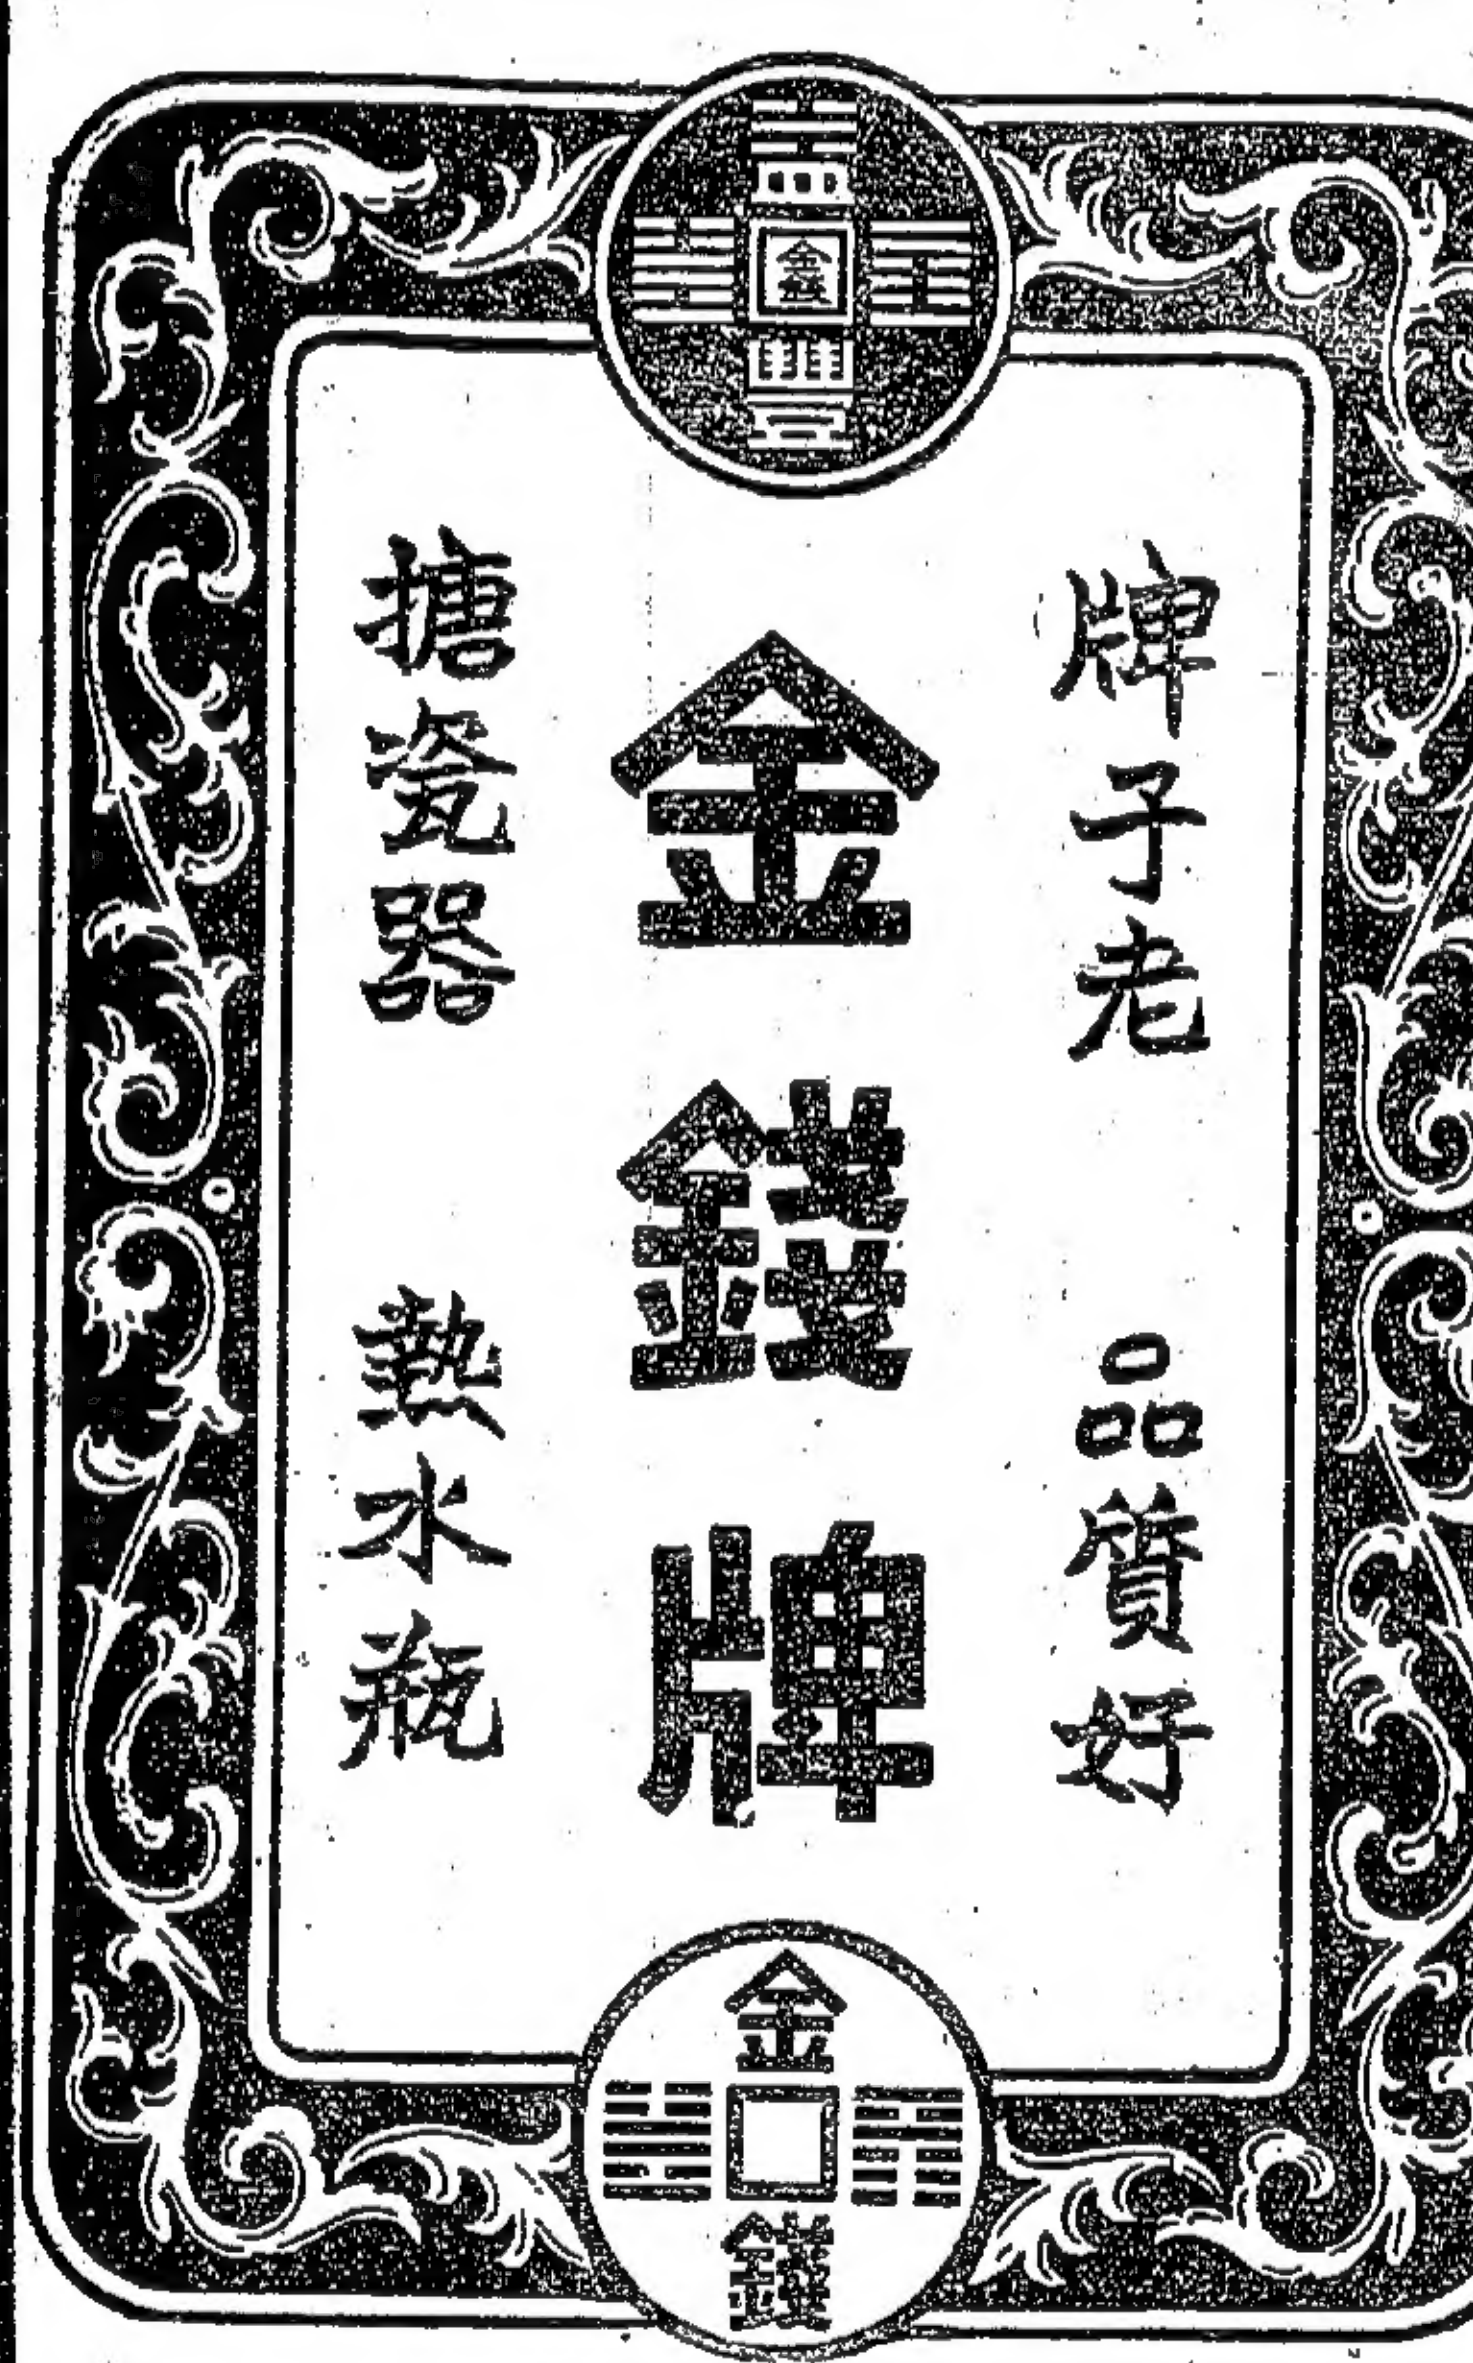 益豐
金錢
牌子老 品質好
金錢牌
搪瓷器 熱水瓶
金錢